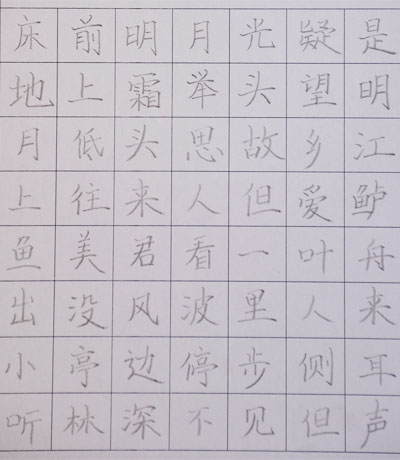 床前明月光疑是
地上霜举头望明
月低头思故乡江
上往来人但爱鲈
鱼美君看一叶舟
出没风波里人来
小亭边停步侧耳
听林深不见但声